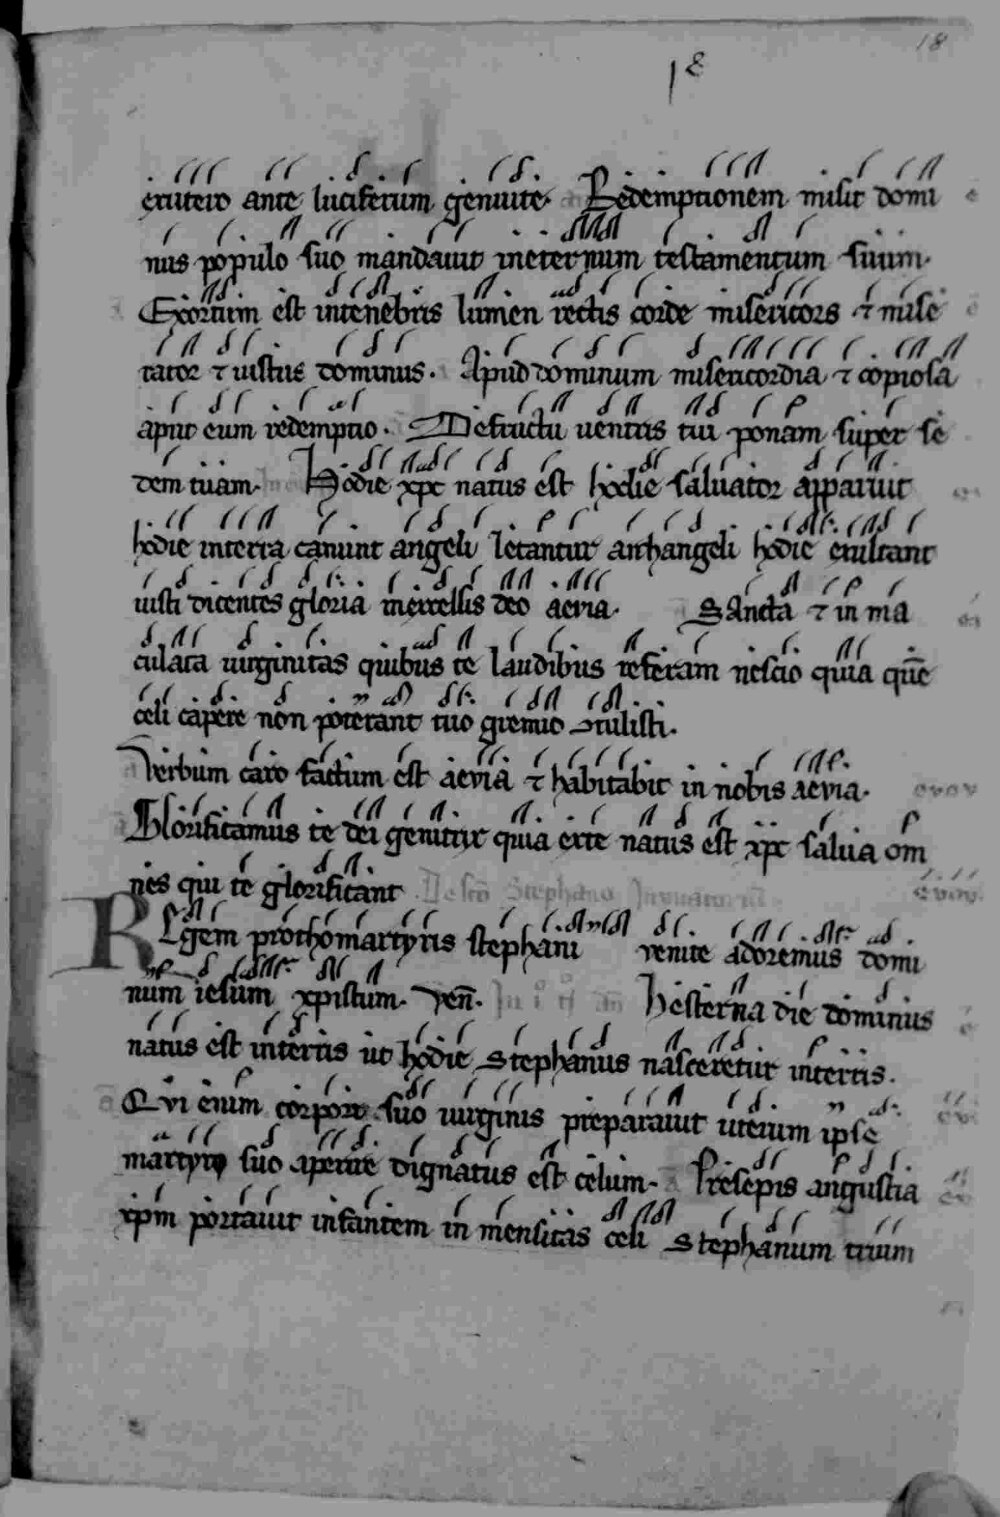 18
18
exutero ante luciferum genuite. Redemptionem misit domi
nus populo suo mandavit ineternum testamentum suum.
Exortum est intenebris lumen rectis corde misericors & mise
rator & iustus dominus. Apud dominum misericordia & copiosa
aput eum redemptio. Defructu uentris tui ponam super se
dem tuam. Hodie xpc natus est hodie saluator apparuit
hodie interra canunt angeli letantur archangeli hodie exultant
iusti dicentes gloria inexcelsis deo aevia. Sancta & in ma
culata uirginitas quibus te laudibus referam nescio quia quē
celi capere non poterant tuo gremio ctulisti.
Verbum caro factum est aevia & habitabit in nobis aevia. evovv
Glorificamus te dei genitrix quia exte natus est xpc salua om
nes qui te glorificant De sco Stephano Inuitatorium evovv.
Regem prothomartyris stephani venite adoremus domi
num iesum xpistum. Ven. In i n an Hesterna die dominus
natus est interris ut hodie Stephanus nasceretur interris.
Qui enim corpore suo uirginis preparauit uterum ipse
martyrio suo aperire dignatus est celum. Presepis angustia
xpm portauit infantem in mensitas celi Stephanum trium